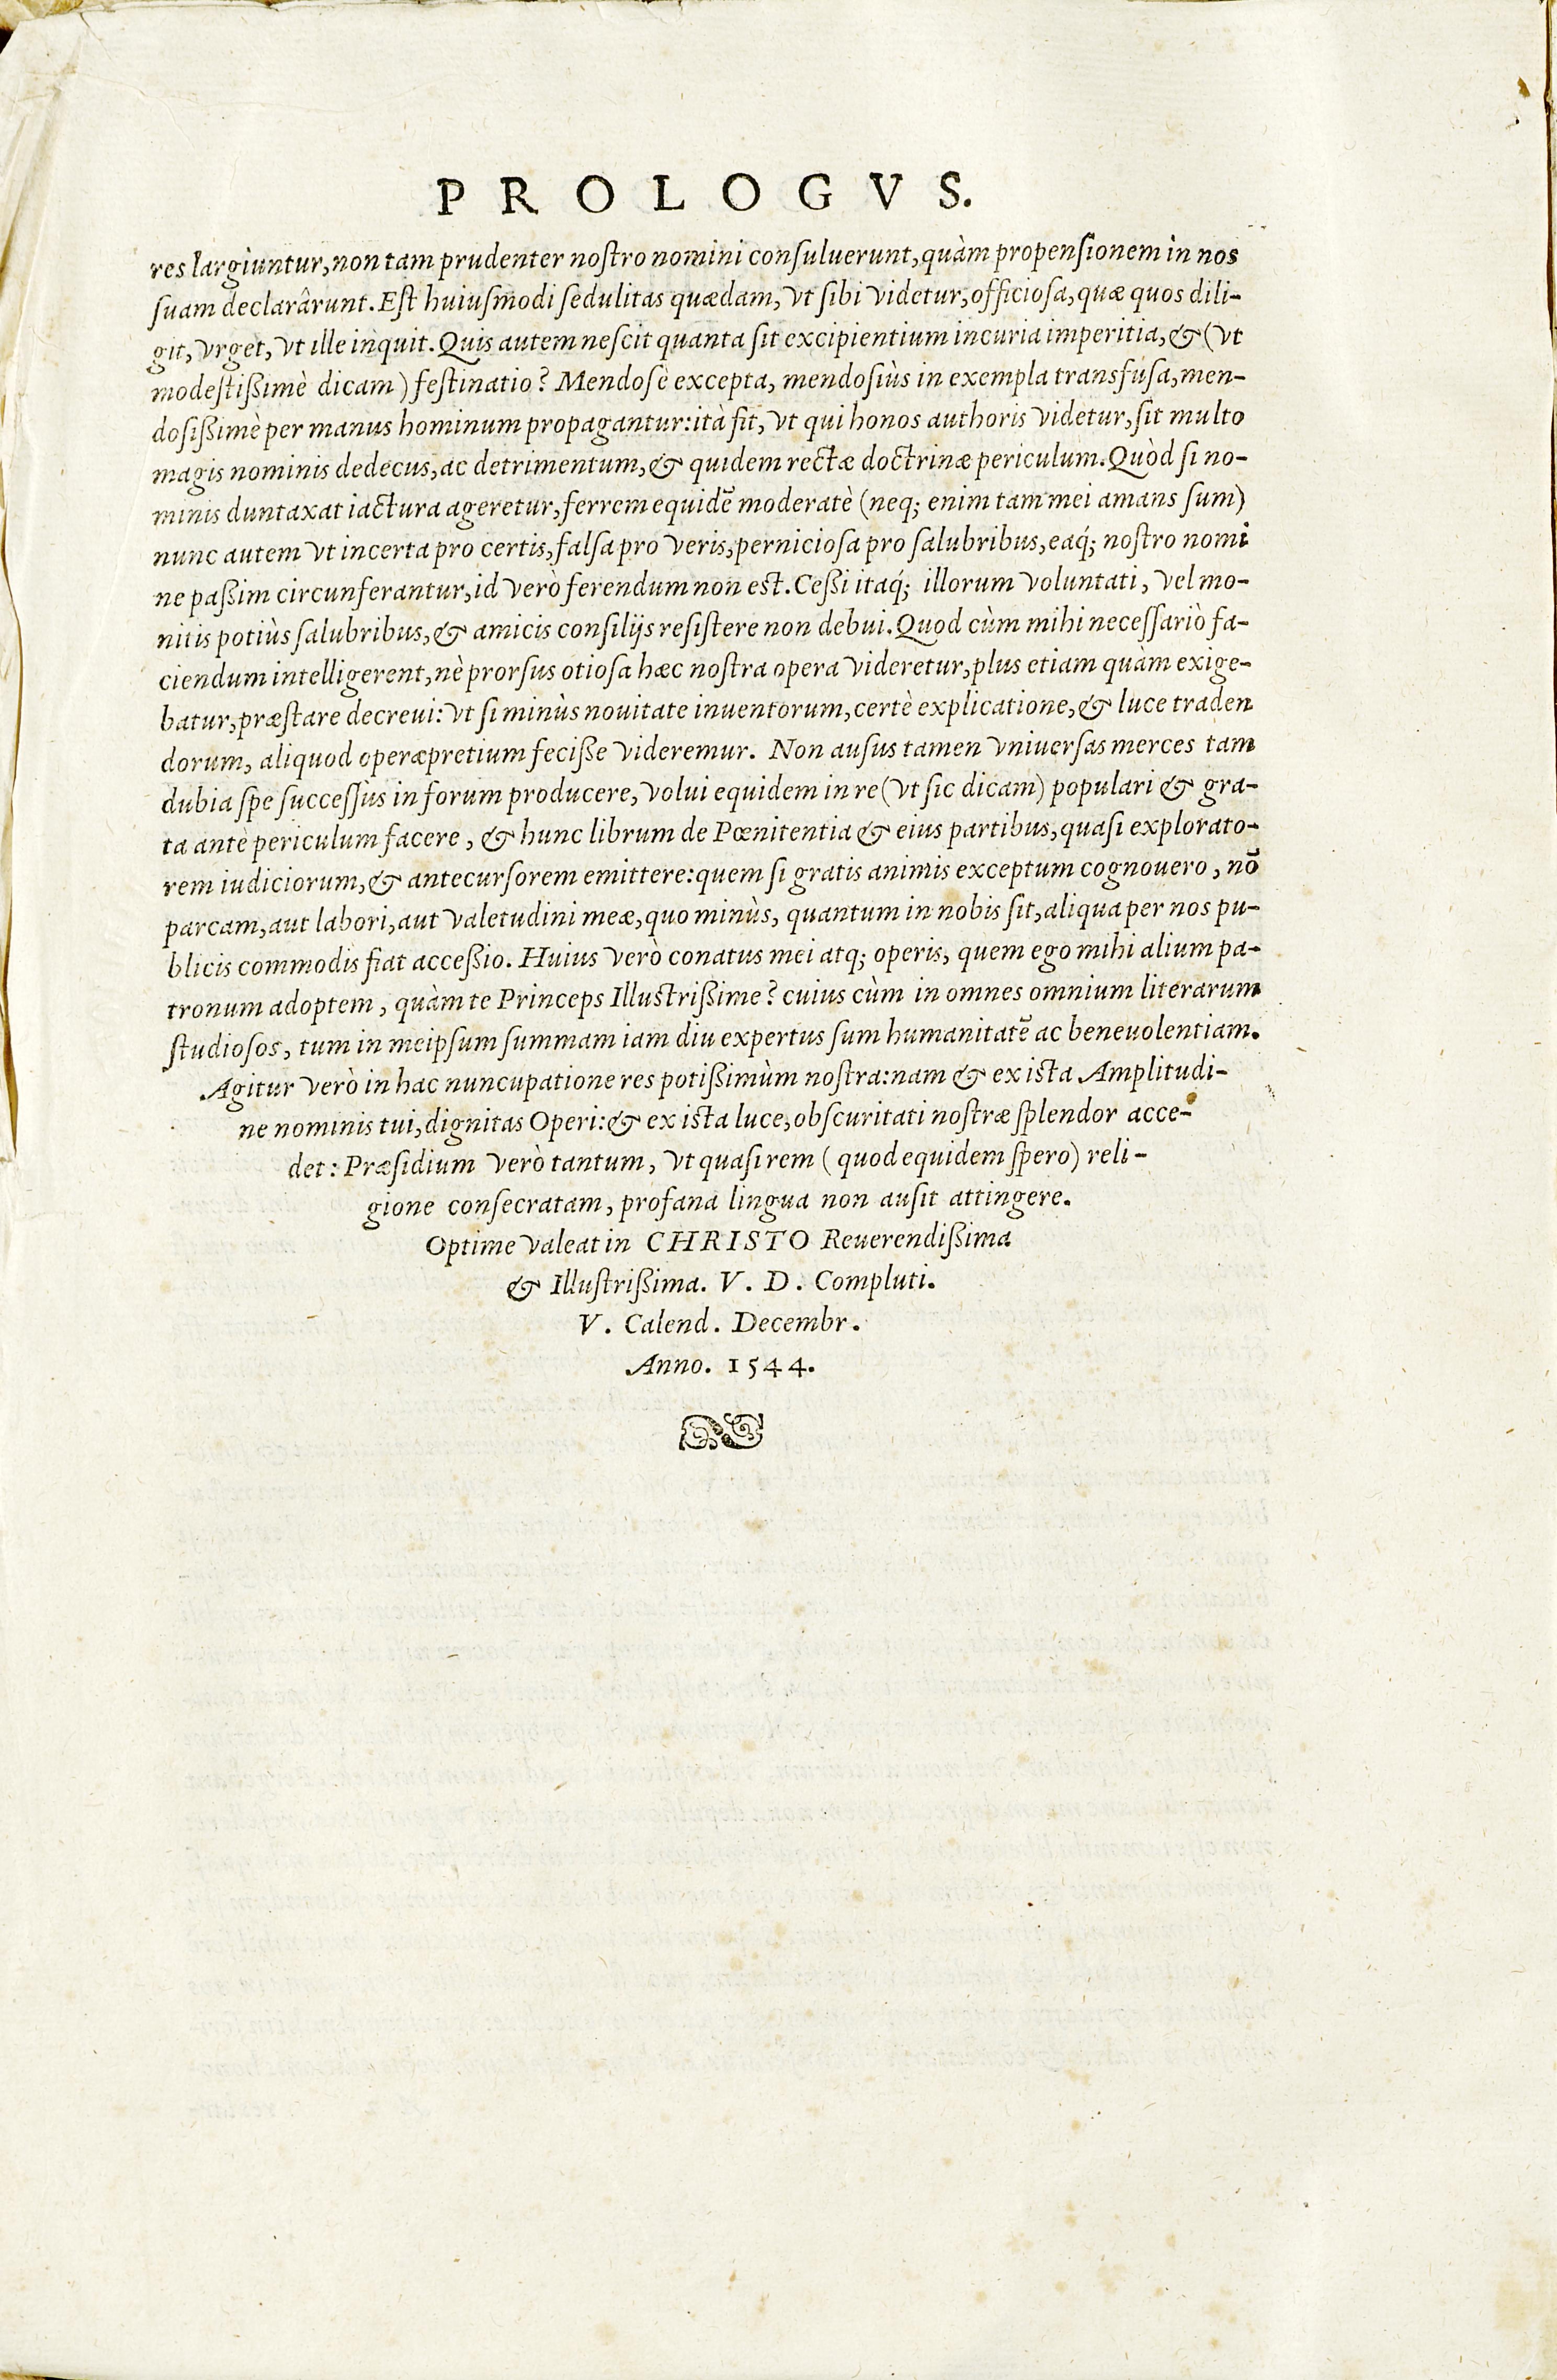 PROLOGVS.
res largiuntur, non tam prudenter noſtro nomini conſuluerunt, quàm propenſionem in nos
ſuam declarârunt. Eſt huiuſmodi ſedulitas quædam, vt ſibi videtur, officioſa, quæ quos dili-
git, vrget, vt ille inquit. Quis autem neſcit quanta ſit excipientium incuria imperitia, & (vt
modeſtißimè dicam) feſtinatio? Mendoſè excepta, mendoſiùs in exempla transfuſa, men-
doſißimè per manus hominum propagantur: ità fit, vt qui honos authoris videtur, ſit multo
magis nominis dedecus, ac detrimentum, & quidem rectæ doctrinæ periculum. Quòd ſi no-
minis duntaxat iactura ageretur, ferrem equidē moderatè (neq; enim tam mei amans ſum)
nunc autem vt incerta pro certis, falſa pro veris, pernicioſa pro ſalubribus, eaq́; noſtro nomi
ne paßim circunferantur, id verò ferendum non eſt. Ceßi itaq́; illorum voluntati, vel mo-
nitis potiùs ſalubribus, & amicis conſilijs reſiſtere non debui. Quod cùm mihi neceſſariò fa-
ciendum intelligerent, nè prorſus otioſa hæc noſtra opera videretur, plus etiam quàm exige-
batur, præſtare decreui: vt ſi minùs nouitate inuentorum, certè explicatione, & luce traden
dorum, aliquod operæpretium feciße videremur. Non auſus tamen vniuerſas merces tam
dubia ſpe ſucceſſùs in forum producere, volui equidem in re (vt ſic dicam) populari & gra-
ta antè periculum facere, & hunc librum de Pœnitentia & eius partibus, quaſi explorato-
rem iudiciorum, & antecurſorem emittere: quem ſi gratis animis exceptum cognouero, nō
parcam, aut labori, aut valetudini meæ, quo minùs, quantum in nobis ſit, aliqua per nos pu-
blicis commodis fiat acceßio. Huius verò conatus mei atq; operis, quem ego mihi alium pa-
tronum adoptem, quàm te Princeps Illuſtrißime? cuius cùm in omnes omnium literarum
ſtudioſos, tum in meipſum ſummam iam diu expertus ſum humanitatē ac beneuolentiam.
Agitur verò in hac nuncupatione res potißimùm noſtra: nam & ex iſta Amplitudi-
ne nominis tui, dignitas Operi: & ex iſta luce, obſcuritati noſtræ ſplendor acce-
det: Præſidium verò tantum, vt quaſi rem (quod equidem ſpero) reli-
gione conſecratam, profana lingua non auſit attingere.
Optime valeat in CHRISTO Reuerendißima
& Illuſtrißima. V. D. Compluti.
V. Calend. Decembr.
Anno. 1544.